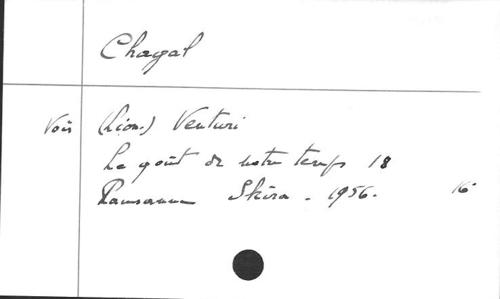 Chagal
Voir (Lion.) Venturi
Le goût de notre temps 18
Lausanne Skira - 1956. 16°